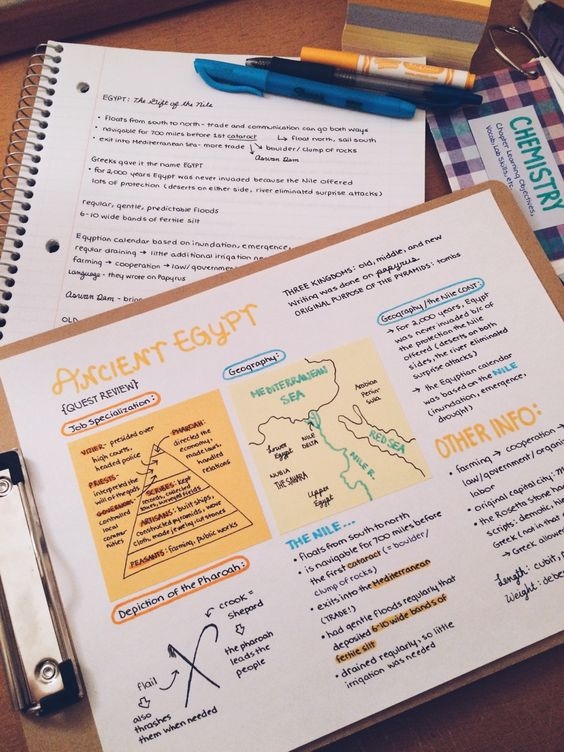 EGYPT: The Gift of the Nile
• floats from south to north - trade and communication can go both ways
• navigable for 700 miles before 1st cataract ↳ float north, sail south
• exit into Mediterranean sea - more trade ↘ boulder/clump of rocks
Aswan Dam
Greeks gave it the name EGYPT
• for 2,000 years Egypt was never invaded because the Nile offered
lots of protection (deserts on either side, river eliminated surprise attacks)
regular, gentle, predictable floods
6-10 wide bands of fertile silt
Egyptian calendar based on inundation, emergence,
regular draining → little additional irrigation
farming → cooperation → law/government
Language - they wrote on Papyrus
Aswan Dam -
OLD
CHEMISTRY
Chapter Learning Objectives,
Vocab, Lab Skills, etc.
ANCIENT EGYPT
{QUEST REVIEW}
THREE KINGDOMS: old, middle, and new
Writing was done on papyrus
ORIGINAL PURPOSE OF THE PYRAMIDS: tombs
Job Specialization:
VIZIER- presided over
high courts,
headed police
PRIESTS-
interpreted the
will of the gods
GOVERNORS-
controlled
local
commu-
nities
PHAROAH:
directed the
economy,
made laws,
handled
relations
SCRIBES: kept
records, collected
taxes, surveyed fields
ARTISANS: built ships,
constructed pyramids, wove
cloth, made jewelry, cut stones
PEASANTS: farming, public works
Geography:
MEDITERRANEAN
SEA
Arabian
Penin-
sula
Lower
Egypt
NILE
DELTA
RED SEA
NUBIA
THE SAHARA
NILE R.
Upper
Egypt
Geography/the Nile CONT:
→ for 2,000 years, Egypt
was never invaded b/c of
the protection the Nile
offered (deserts on both
sides, the river eliminated
surprise attacks)
→ the Egyptian calendar
was based on the NILE
(inundation, emergence,
drought)
Depiction of the Pharoah:
crook =
shepord
the pharoah
leads the
people
flail
also
thrashes
them when needed
THE NILE...
• floats from south to north
• is navigable for 700 miles before
the first cataract (= boulder/
clump of rocks)
• exits into the Mediterranean
(TRADE!)
• had gentle floods regularly that
deposited 6-10 wide bands of
fertile silt
• drained regularly, so little
irrigation was needed
OTHER INFO:
• farming → cooperation →
law/government/organi
labor
• original capital city: M
• the Rosetta Stone ha
scripts: demotic, hi
Greek (not in that
→ Greek allowe
Length: cubit, p
Weight: debe